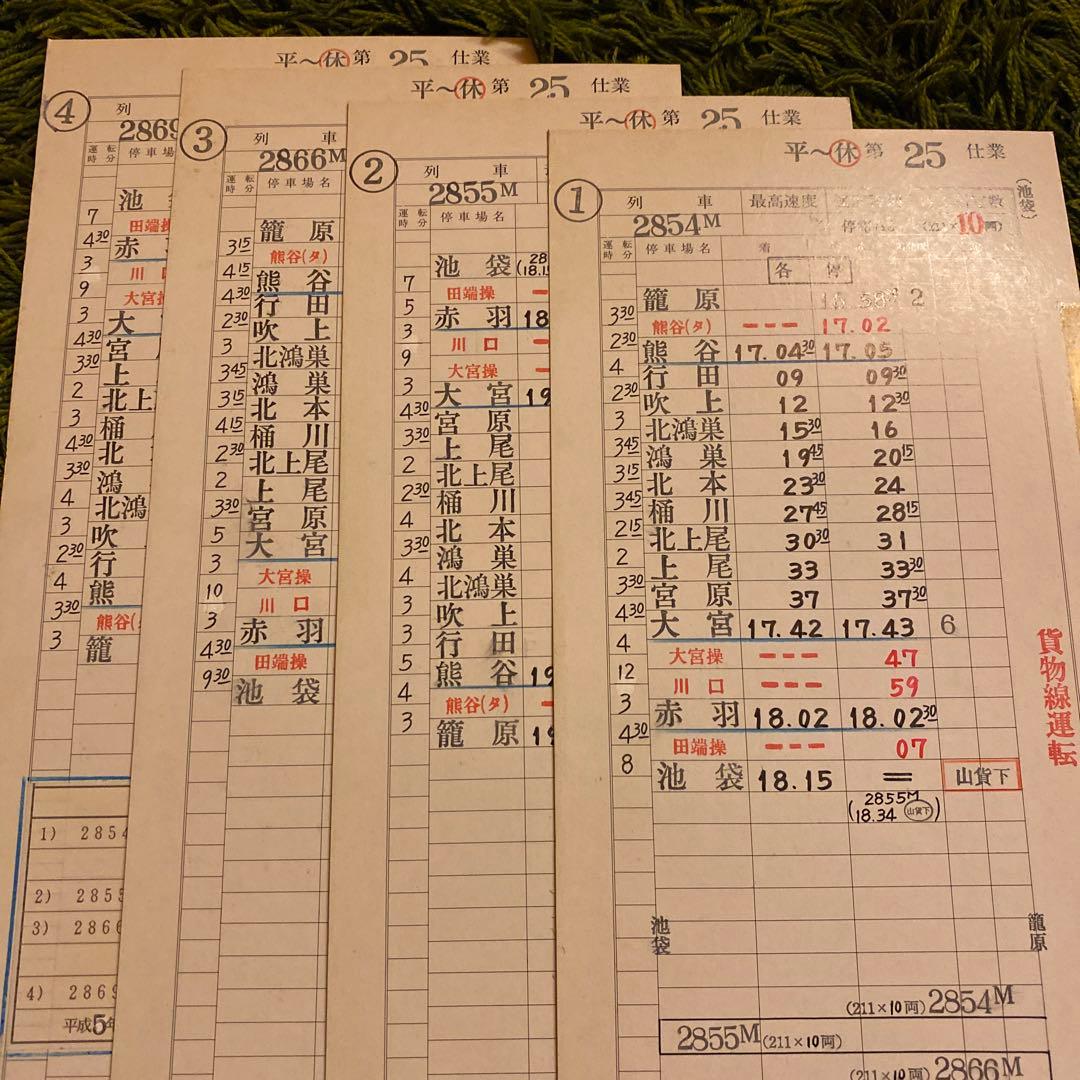 平～休第 25 仕業
④
列
2869
運転時分 停車場
池
7
田端操
4 30 赤
3
川口
9
大宮操
3 大
4 30 宮
3 30 上
2 北上
桶
4 30 北
3 30 鴻
4 北鴻
3 吹
2 30 行
4 熊
3 30
熊谷(
3 籠
1) 2854
2) 2855
3) 2866
4) 2869
平成5年
平～休第 25 仕業
③
列 車
2866M
運転時分 停車場名
籠原
3 15
熊谷(タ)
4 15 熊谷
4 30 行田
2 30 吹上
3 北鴻巣
3 45 鴻巣
3 15 北本
4 15 桶川
2 30 北上尾
2 上尾
3 30 宮原
5 大宮
3
大宮操
10
川口
3 赤羽
4 30
田端操
9 30 池袋
平～休第 25 仕業
②
列 車
2855M
運転時分 停車場名
池袋
7
田端操
5 赤羽 18
3
川口
9
大宮操
3 大宮 19
4 30 宮原
3 30 上尾
2 北上尾
2 30 桶川
4 北本
3 30 鴻巣
4 北鴻巣
3 吹上
3 行田
5 熊谷 19
4
熊谷(タ)
3 籠原 19
平～休第 25 仕業
(池袋)
①
列 車 最高速度 数
2854M (211×10両)
運転時分 停車場名 着
各停
籠原 2
3 30
熊谷(タ) --- 17.02
2 30 熊谷 17.04 30 17.05
4 行田 09 09 30
2 30 吹上 12 12 30
3 北鴻巣 15 30 16
3 45 鴻巣 19 45 20 15
3 15 北本 23 30 24
3 45 桶川 27 45 28 15
2 15 北上尾 30 30 31
2 上尾 33 33 30
3 30 宮原 37 37 30
4 30 大宮 17.42 17.43 6
4 大宮操 --- 47
12 川口 --- 59
3 赤羽 18.02 18.02 30
4 30 田端操 --- 07
8 池袋 18.15 = 山貨下
2855M
(18.34 山貨下)
貨物線運転
池袋 籠原
(211×10両) 2854M
2855M (211×10両)
(211×10両) 2866M